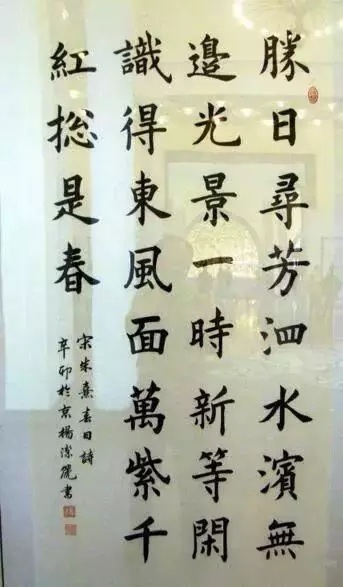 勝日尋芳泗水濱無
邊光景一時新等閑
識得東風面萬紫千
紅捴是春
宋朱熹春日詩
辛卯於京楊潔儷書